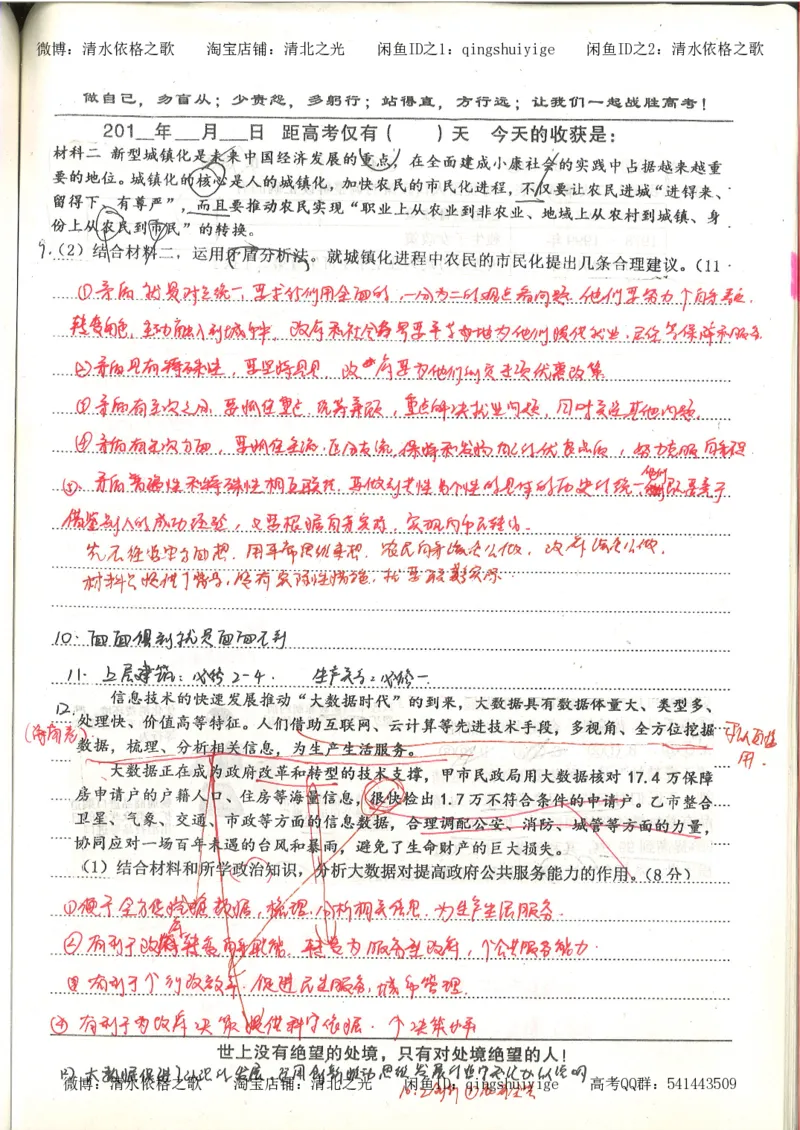 微博：清水依格之歌 淘宝店铺：清北之光 闲鱼ID之1：qingshuiyige 闲鱼ID之2：清水依格之歌
做自己，勿盲从；少责怨，多躬行；站得直，方行远；让我们一起战胜高考！
201__年___月___日 距高考仅有（ ）天 今天的收获是：
材料二 新型城镇化是未来中国经济发展的重点，在全面建成小康社会的实践中占据越来越重
要的地位。城镇化的核心是人的城镇化，加快农民的市民化进程，不仅要让农民进城“进得来、
留得下、有尊严”，而且要推动农民实现“职业上从农业到非农业、地域上从农村到城镇、身
份上从农民到市民”的转换。
9.（2）结合材料二，运用矛盾分析法。就城镇化进程中农民的市民化提出几条合理建议。（11
①矛盾就是对立统一，要求我们用全面的，一分为二的观点看问题.他们要努力
转变角色，主动融入到城市中.政府和社会 为他们提供就业， 等保障和服务.
②矛盾具有特殊性，要坚持具 ，政府要为他们制定专项优惠政策.
③矛盾有主次之分.要抓住重点.统筹兼顾，重点解决就业问题，同时 其他问题.
④矛盾有主次方面，要抓住主流. 保持和发扬 优良品质，努力克服
⑤.矛盾普遍性和特殊性相互联 ，要做到共性与个性的具体的历史的统一 既要善于
借鉴别人的成功经验，又要根据自身实际，实现
农民自身该怎么做，政府该怎么做.
材料只提供了 ，没有实际性措施.
10. 面面俱到就是面面不到
11. 上层建筑：必修2-4. 生产关系：必修一
12. 信息技术的快速发展推动“大数据时代”的到来，大数据具有数据体量大、类型多、
处理快、价值高等特征。人们借助互联网、云计算等先进技术手段，多视角、全方位挖掘
数据，梳理、分析相关信息，为生产生活服务。
大数据正在成为政府改革和转型的技术支撑，甲市民政局用大数据核对 17.4 万保障
房申请户的户籍人口、住房等海量信息，很快检出 1.7 万不符合条件的申请户。乙市整合
卫星、气象、交通、市政等方面的信息数据，合理调配公安、消防、城管等方面的力量，
协同应对一场百年未遇的台风和暴雨，避免了生命财产的巨大损失。
（1）结合材料和所学政治知识，分析大数据对提高政府公共服务能力的作用。（8分）
①便于全方位挖掘数据，梳理.分析相关信息.为生产生活服务.
②有利于政府转变 职能.转变为服务型政府，个公共服务能力.
③有利于个行政效率.促进民生服务.城市管理.
④有利于为政府决策提供科学依据.个决策水平
世上没有绝望的处境，只有对处境绝望的人！
大数据促进了认识的发展
微博：清水依格之歌 淘宝店铺：清北之光 闲鱼ID：qingshuiyige 高考QQ群：541443509